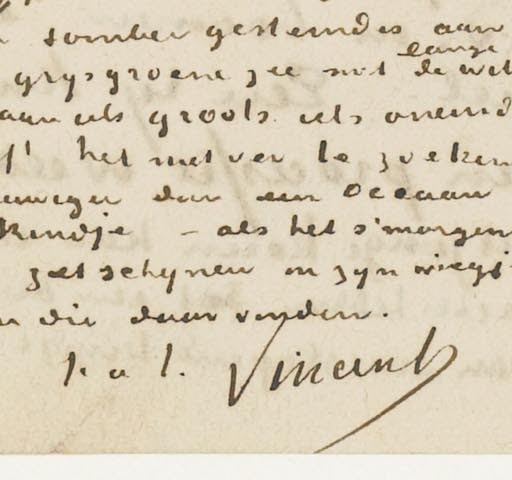 somber gestemdes aan
grijsgroene zee met lange de wit
aan iets groots iets oneind
het niet ver te zoeken
dan een Oceaan
kindje – als het s'morgens
ziet schijnen in zijn wiegj
die daar vinden.
t. à t. Vincent